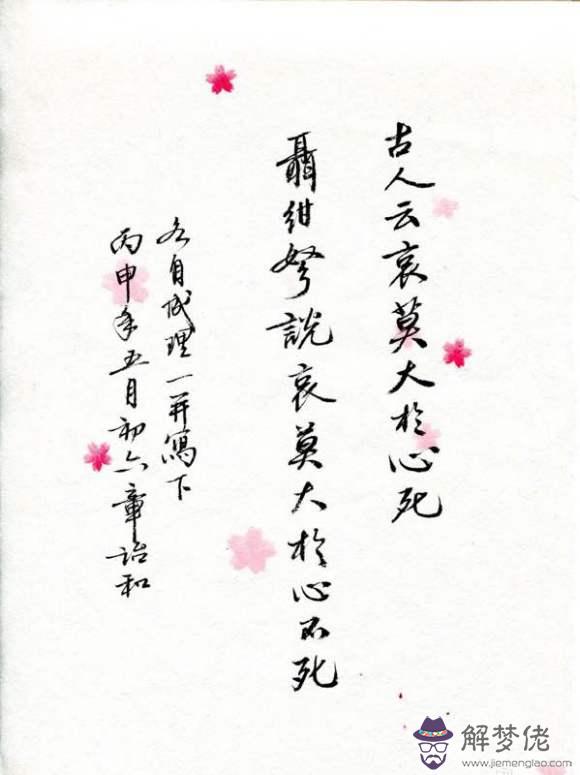 古人云哀莫大於心死
聶紺弩說哀莫大於心不死
各自成理一并寫下
丙申年五月初六章詒和
解梦佬
www.jiemenglao.com